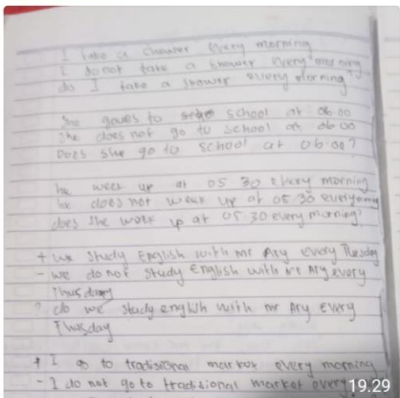 I take a shower every morning
I do not take a shower every morning
do I take a shower every morning?
She goues to school at 06.00
She does not go to school at 06.00
Does she go to school at 06.00?
he week up at 05.30 every morning
he does not weak up at 05.30 every
does she work up at 05.30 every morning?
+ We study English with mr Ary every Tuesday
- we do not study English with mr Ary every
Thusday
? do we study english with mr Ary every
Thusday
+ I go to tradisional market every morning
- I do not go to tradisional market every
19.29